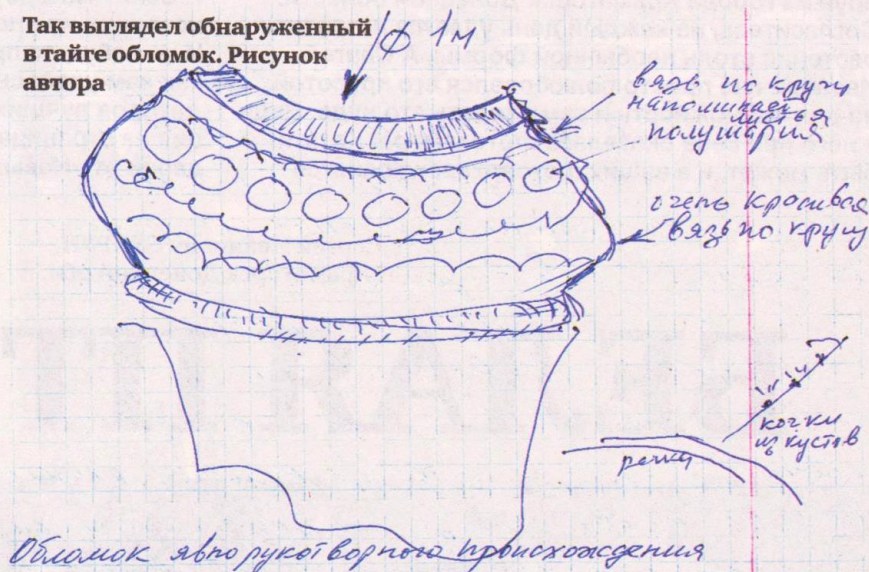 Так выглядел обнаруженный
в тайге обломок. Рисунок
автора
ϕ 1м
вязь по кругу
напоминает
полушария
очень красивая
вязь по кругу
кочки
из кустов
речка
Обломок явно рукотворного происхождения